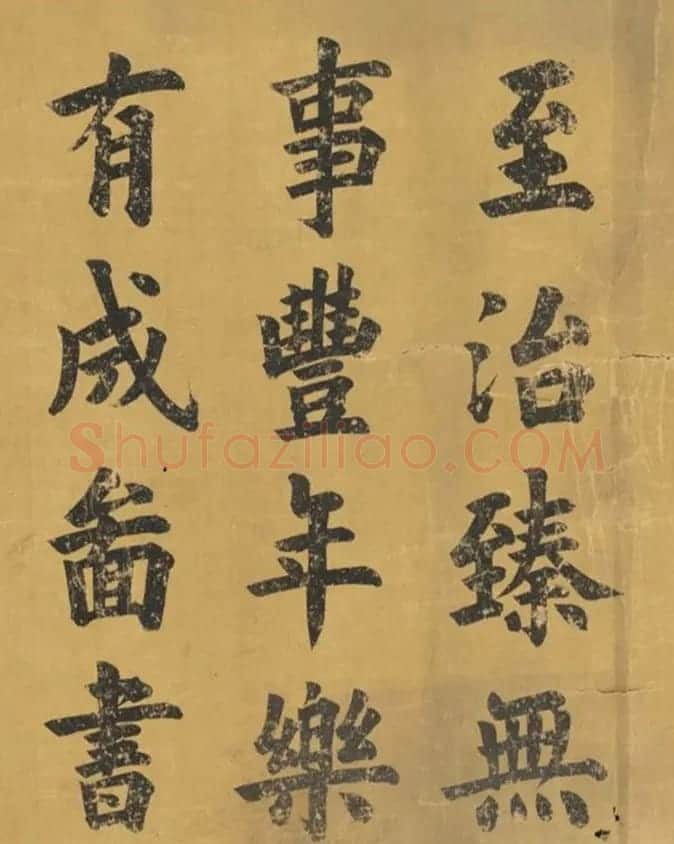 至治臻無
事豐年樂
有成啚書
Shufaziliao.COM